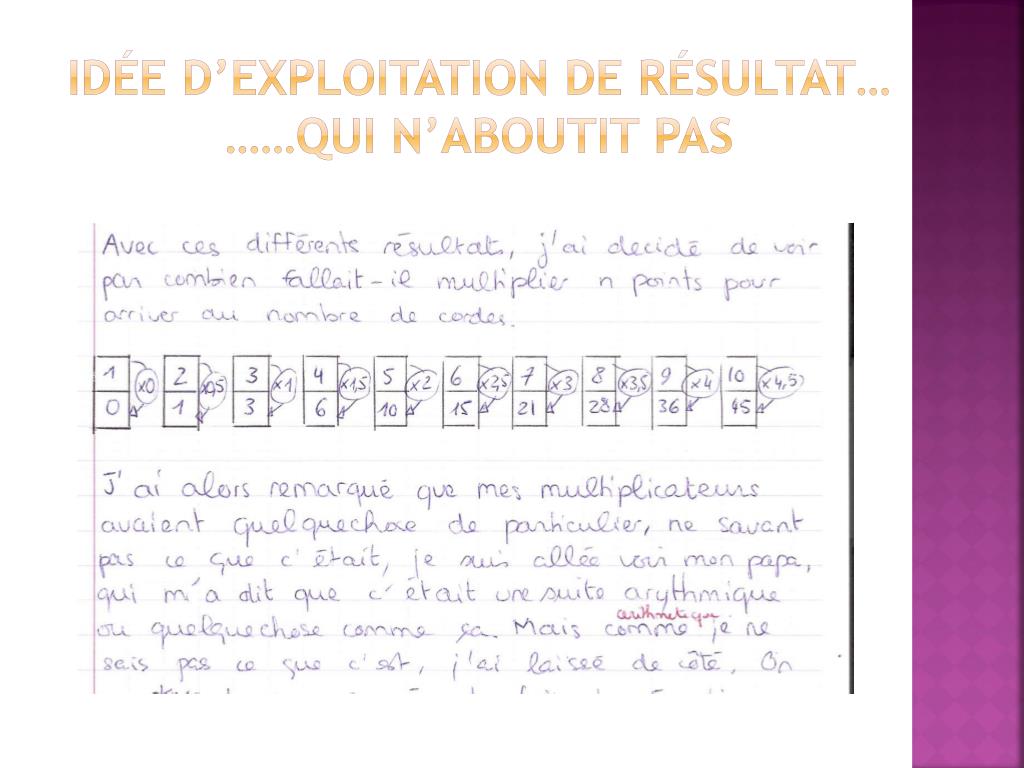 IDÉE D'EXPLOITATION DE RÉSULTAT…
……QUI N'ABOUTIT PAS
Avec ces différents résultats, j'ai decidé de voir
par combien fallait-il multiplier n points pour
arriver au nombre de cordes.
1 x0 2 x0,5 3 x1 4 x1,5 5 x2 6 x2,5 7 x3 8 x3,5 9 x4 10 x4,5
0 1 3 6 10 15 21 28 36 45
J'ai alors remarqué que mes multiplicateurs
avaient quelquechose de particulier, ne savant
pas ce que c'était, je suis allée voir mon papa,
qui m'a dit que c'était une suite arythmique
arithmetique
ou quelquechose comme ça. Mais comme je ne
sais pas ce que c'est, j'ai laissé de côté. On